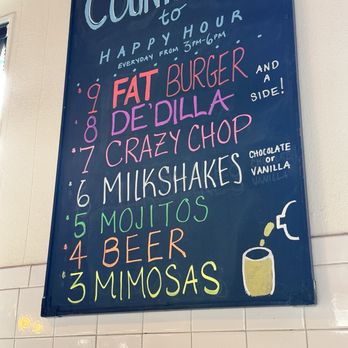 to
HAPPY HOUR
EVERYDAY FROM 3PM-6PM
$9 FAT BURGER AND A SIDE!
$8 DE'DILLA
$7 CRAZY CHOP
$6 MILKSHAKES CHOCOLATE or VANILLA
$5 MOJITOS
$4 BEER
$3 MIMOSAS